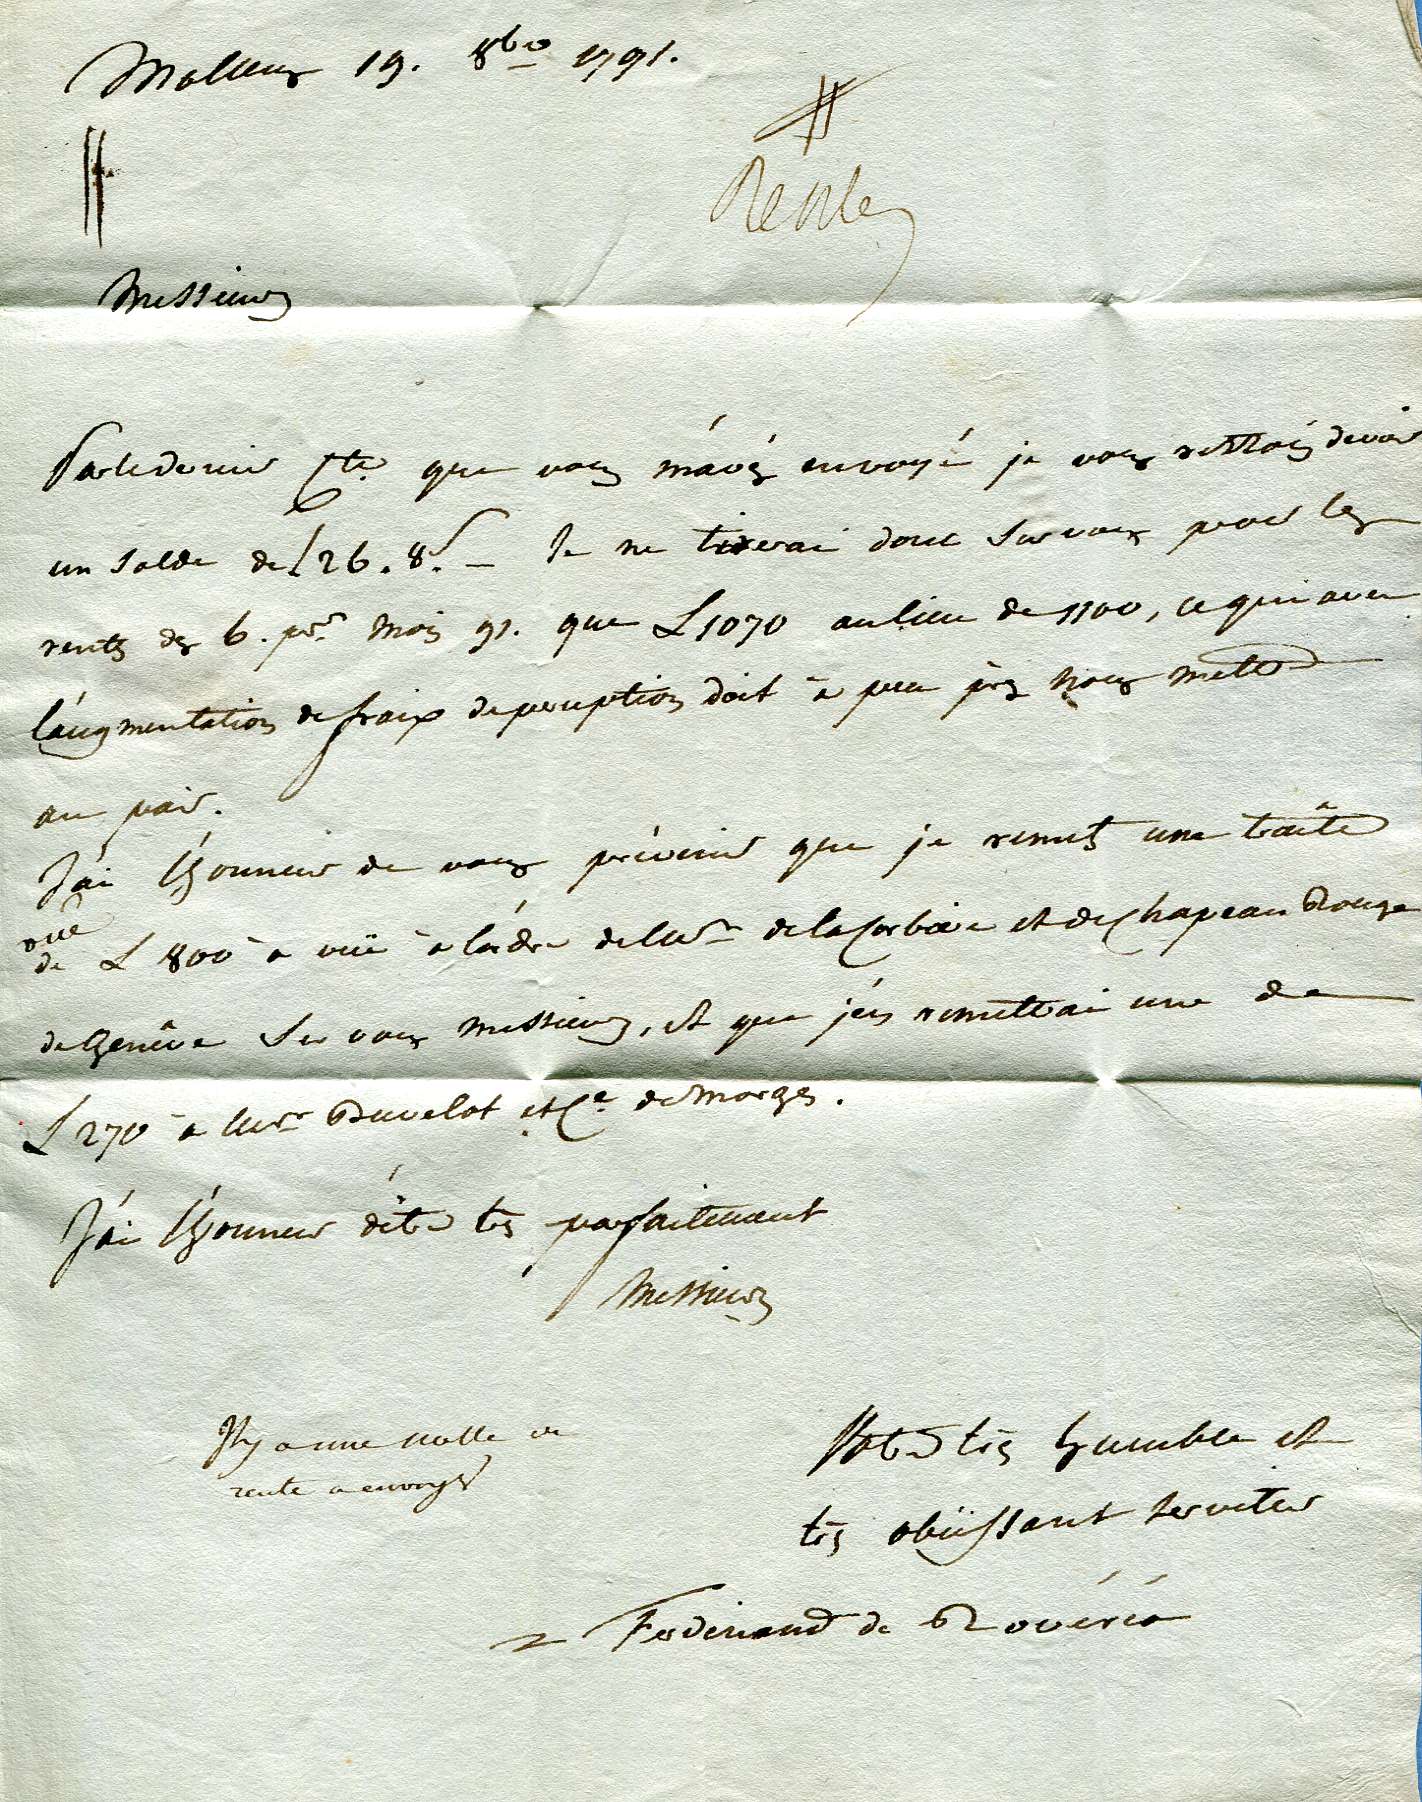 19. 8bre 1791.
Messieurs
Par le dernier Cte. que vous m'avés envoyé je vous restois devoir
un solde de L 26. 8. s — Je ne tirerai donc sur vous pour les
rentes des 6. prs. mois 91. que L 1070 au lieu de 1100, ce qui avec
l'augmentation de fraix de perception doit à peu près nous mettre
au pair.
J'ai l'honneur de vous prévenir que je remets une traite
vuë
de L 800 à vuë à l'ordre de Mrs. de la Corbière et de Chapeau Rouge
de Genêve sur vous Messieurs, et que j'en remettrai une de
L 270 à Mrs. Duvelot et Ce. de Morges.
J'ai l'honneur d'être très parfaitement
Messieurs
Il y a une notte de
rente a envoyer
Votre très humble et
très obéissant serviteur
Ferdinand de Rovéréa